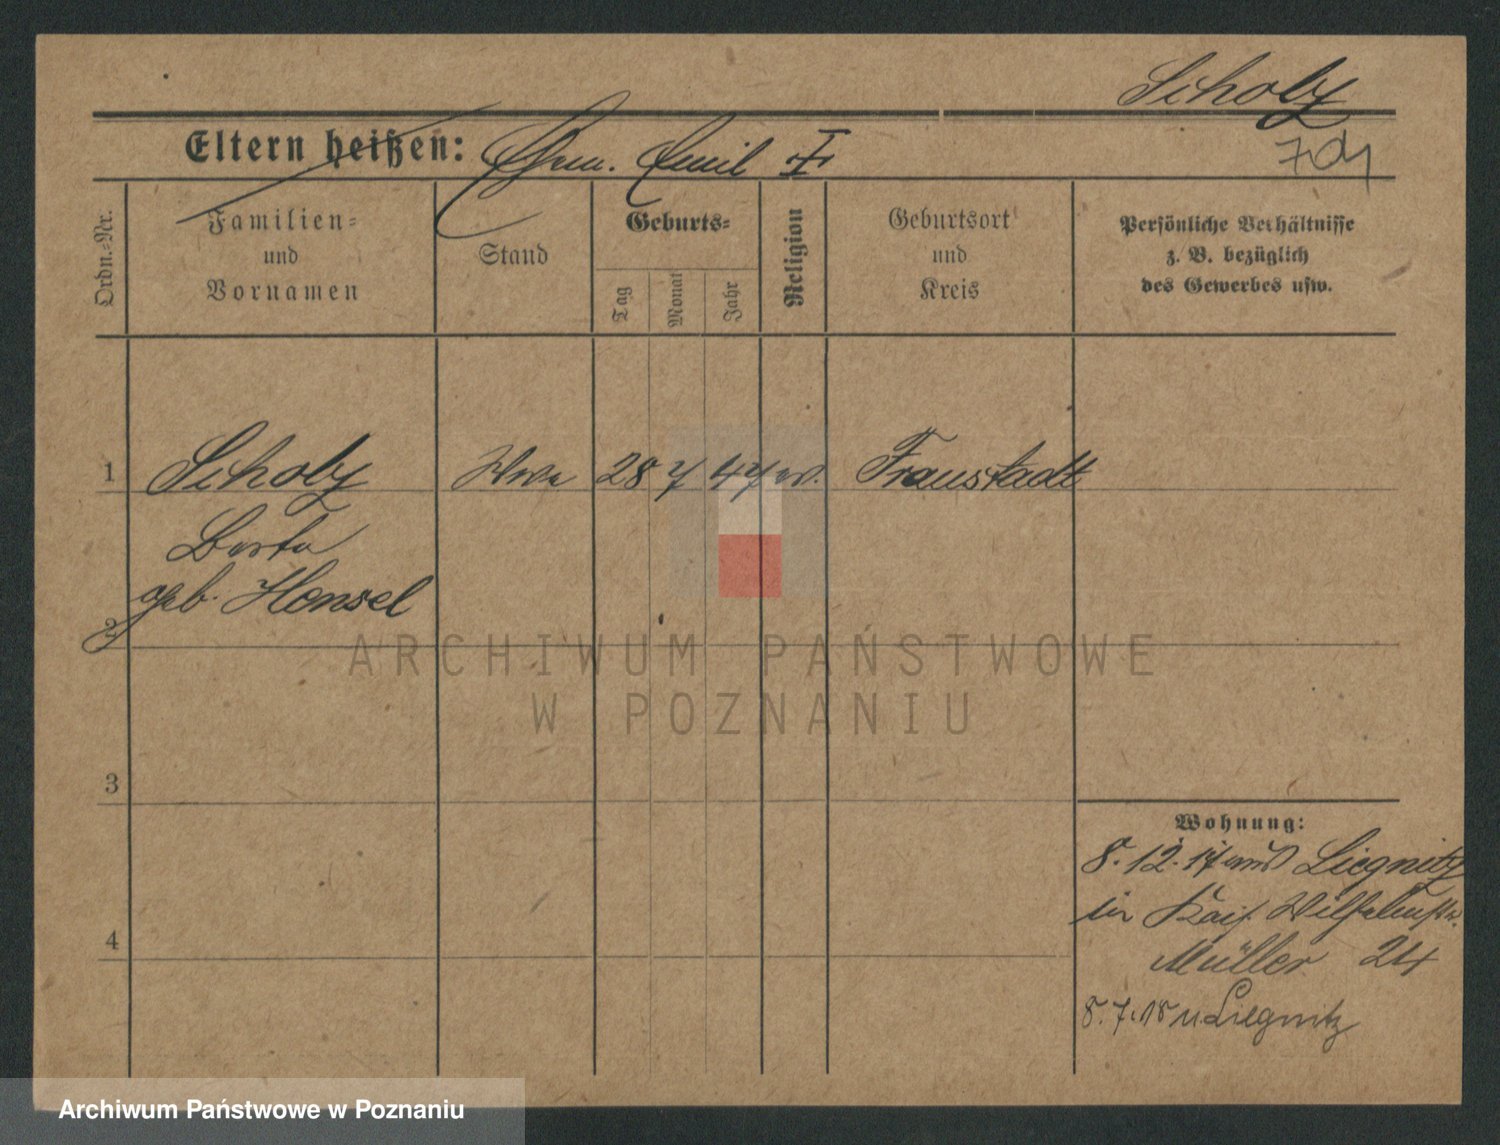 Scholz
Eltern heißen: Ehm. Emil †
Ordn.-Nr.
Familien-
und
Vornamen
Stand
Geburts-
Tag
Monat
Jahr
Religion
Geburtsort
und
Kreis
Persönliche Verhältnisse
z. B. bezüglich
des Gewerbes usw.
1 Scholz Wwe 28 7 47 ev. Fraustadt
Berta
geb. Hensel
2
3
Wohnung:
8.12.17 aus Liegnitz
in Kais. Wilhelmstr.
4
Müller 24
8.7.18 n. Liegnitz
ARCHIWUM PAŃSTWOWE
W POZNANIU
Archiwum Państwowe w Poznaniu